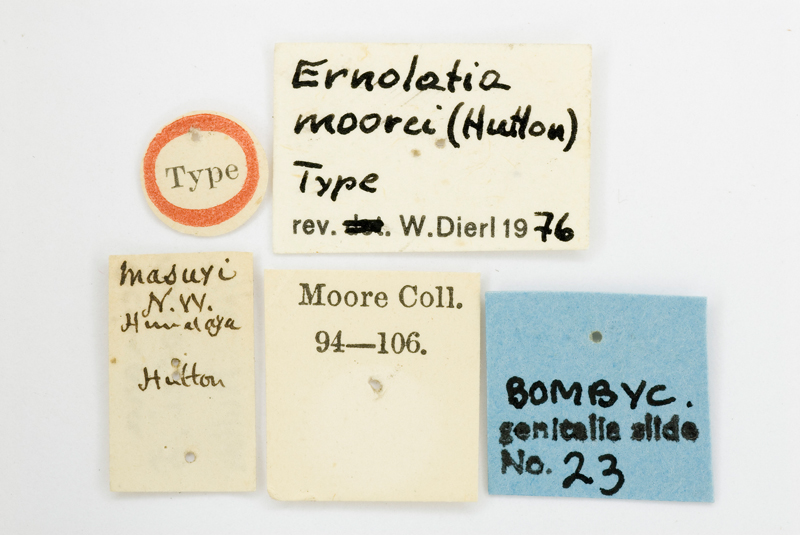 Ernolatia
moorei (Hutton)
Type
rev. W. Dierl 1976
Type
Masuri
N.W.
Himalaya
Hutton
Moore Coll.
94—106.
BOMBYC.
genitalia slide
No. 23